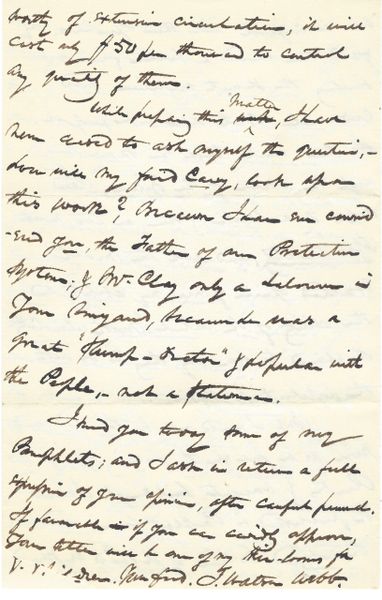 worthy of extensive circulation, it will
cost only $50 per thousand to control
any quantity of them.
While preparing this Matter, I have
never ceased to ask myself the question, -
how will my friend Carey, look upon
this work? Because I have ever consid
-ered you, the Father of our Protective
System; & Mr. Clay only a laborer in
Your vineyard, because he was a
great "Stump-orator" & popular with
the People, - not a Statesman.
I send you to-day some of my
Pamphlets; and I ask in return a full
expression of your opinion, after careful perusal.
If favorable if you can candidly approve,
Your letter will be one of my heir-looms for
Your friend. J. Watson Webb.